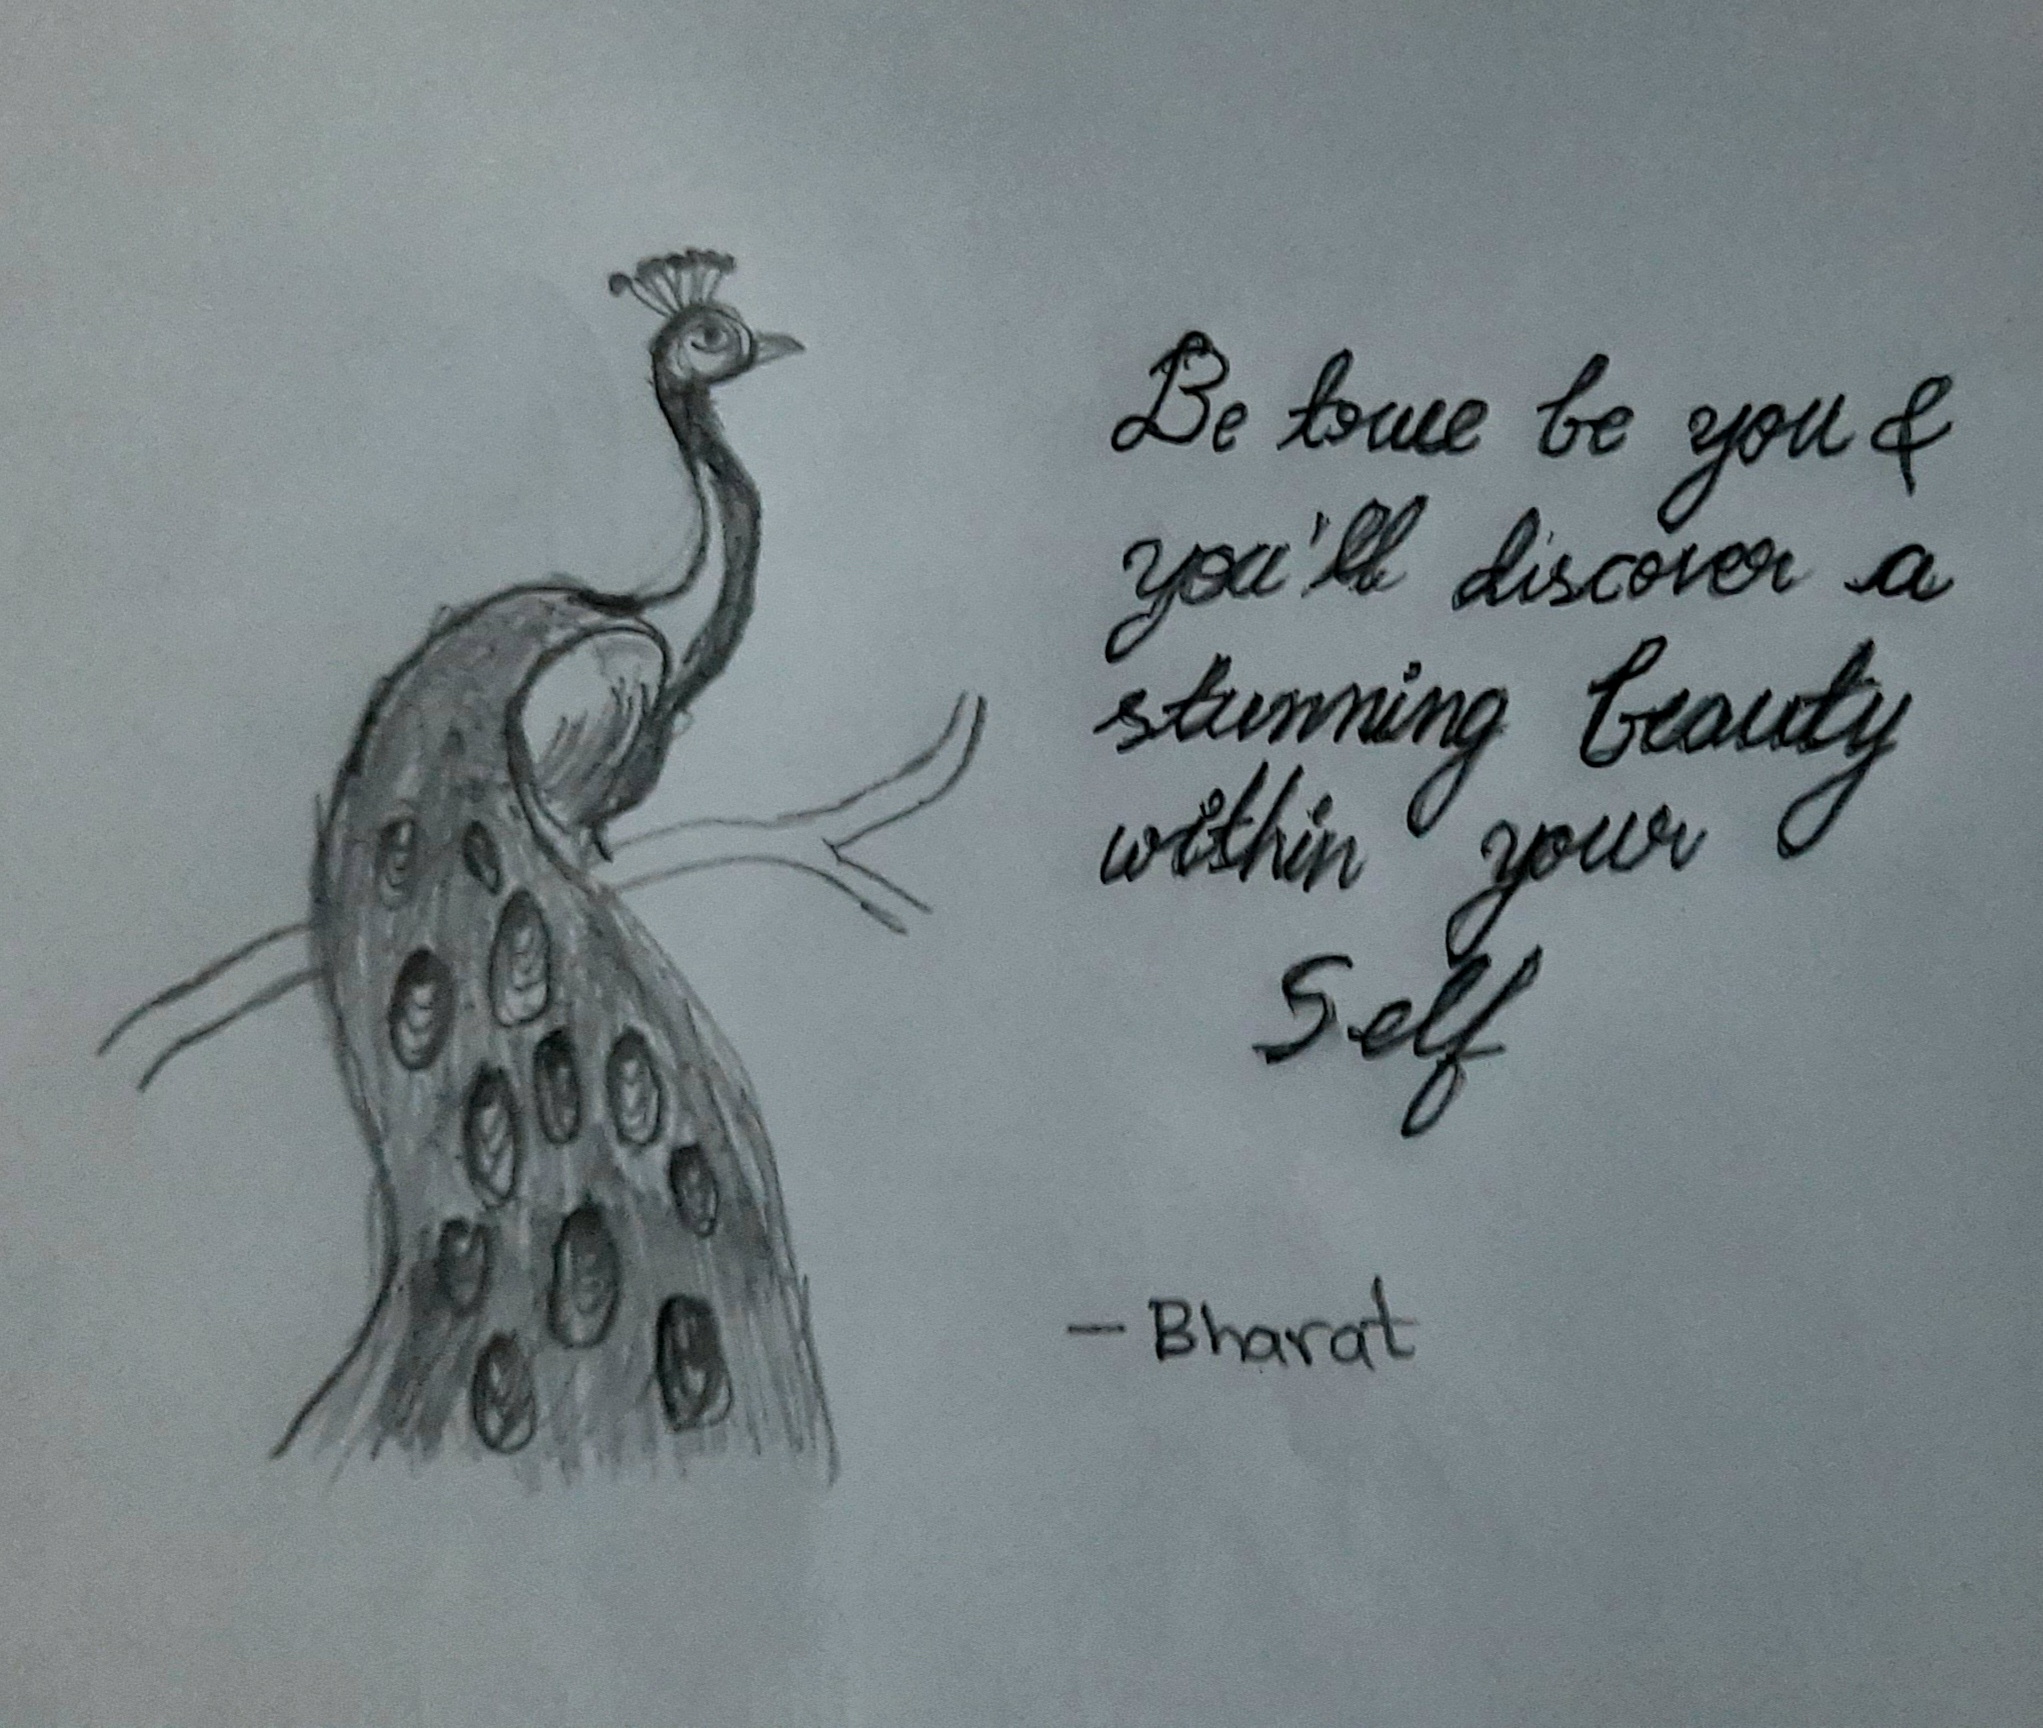 Be true be you &
you'll discover a
stunning beauty
within your
Self
- Bharat